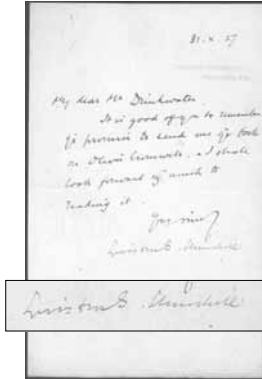 31.x.27
My dear Mr Drinkwater
It is good of you to remember
yr promise to send me yr book
on Oliver Cromwell, & I shall
look forward vy much to
reading it.
Yrs sincly
Winston S. Churchill
Winston S. Churchill